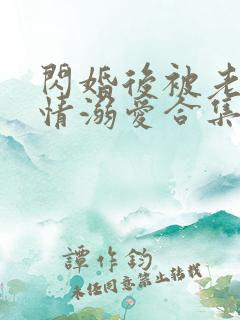 閃婚後被老
情溺愛合集
譚作鈞
未經同意禁止轉載